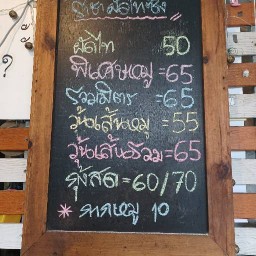 ราคา ผัดไทยซิ่ง
ผัดไท 50
พิเศษหมู = 65
รวมมิตร = 65
วุ้นเส้นหมู = 55
วุ้นเส้นรวม = 65
กุ้งสด = 60/70
* กากหมู 10